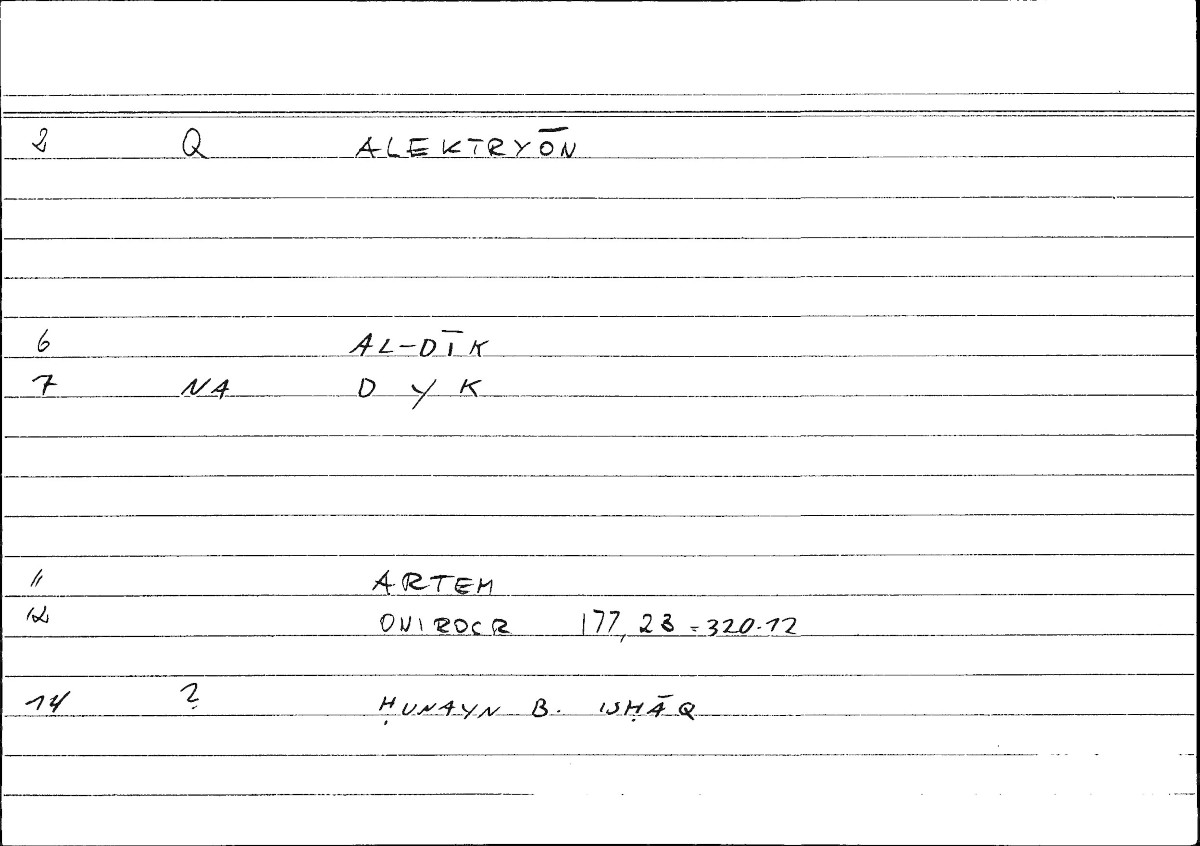 2 Q ALEKTRYŌN
6 AL-DĪK
7 NA D Y K
11 ARTEM
12 ONIROCR 177,23=320.12
14 ? ḤUNAYN B. ISḤĀQ